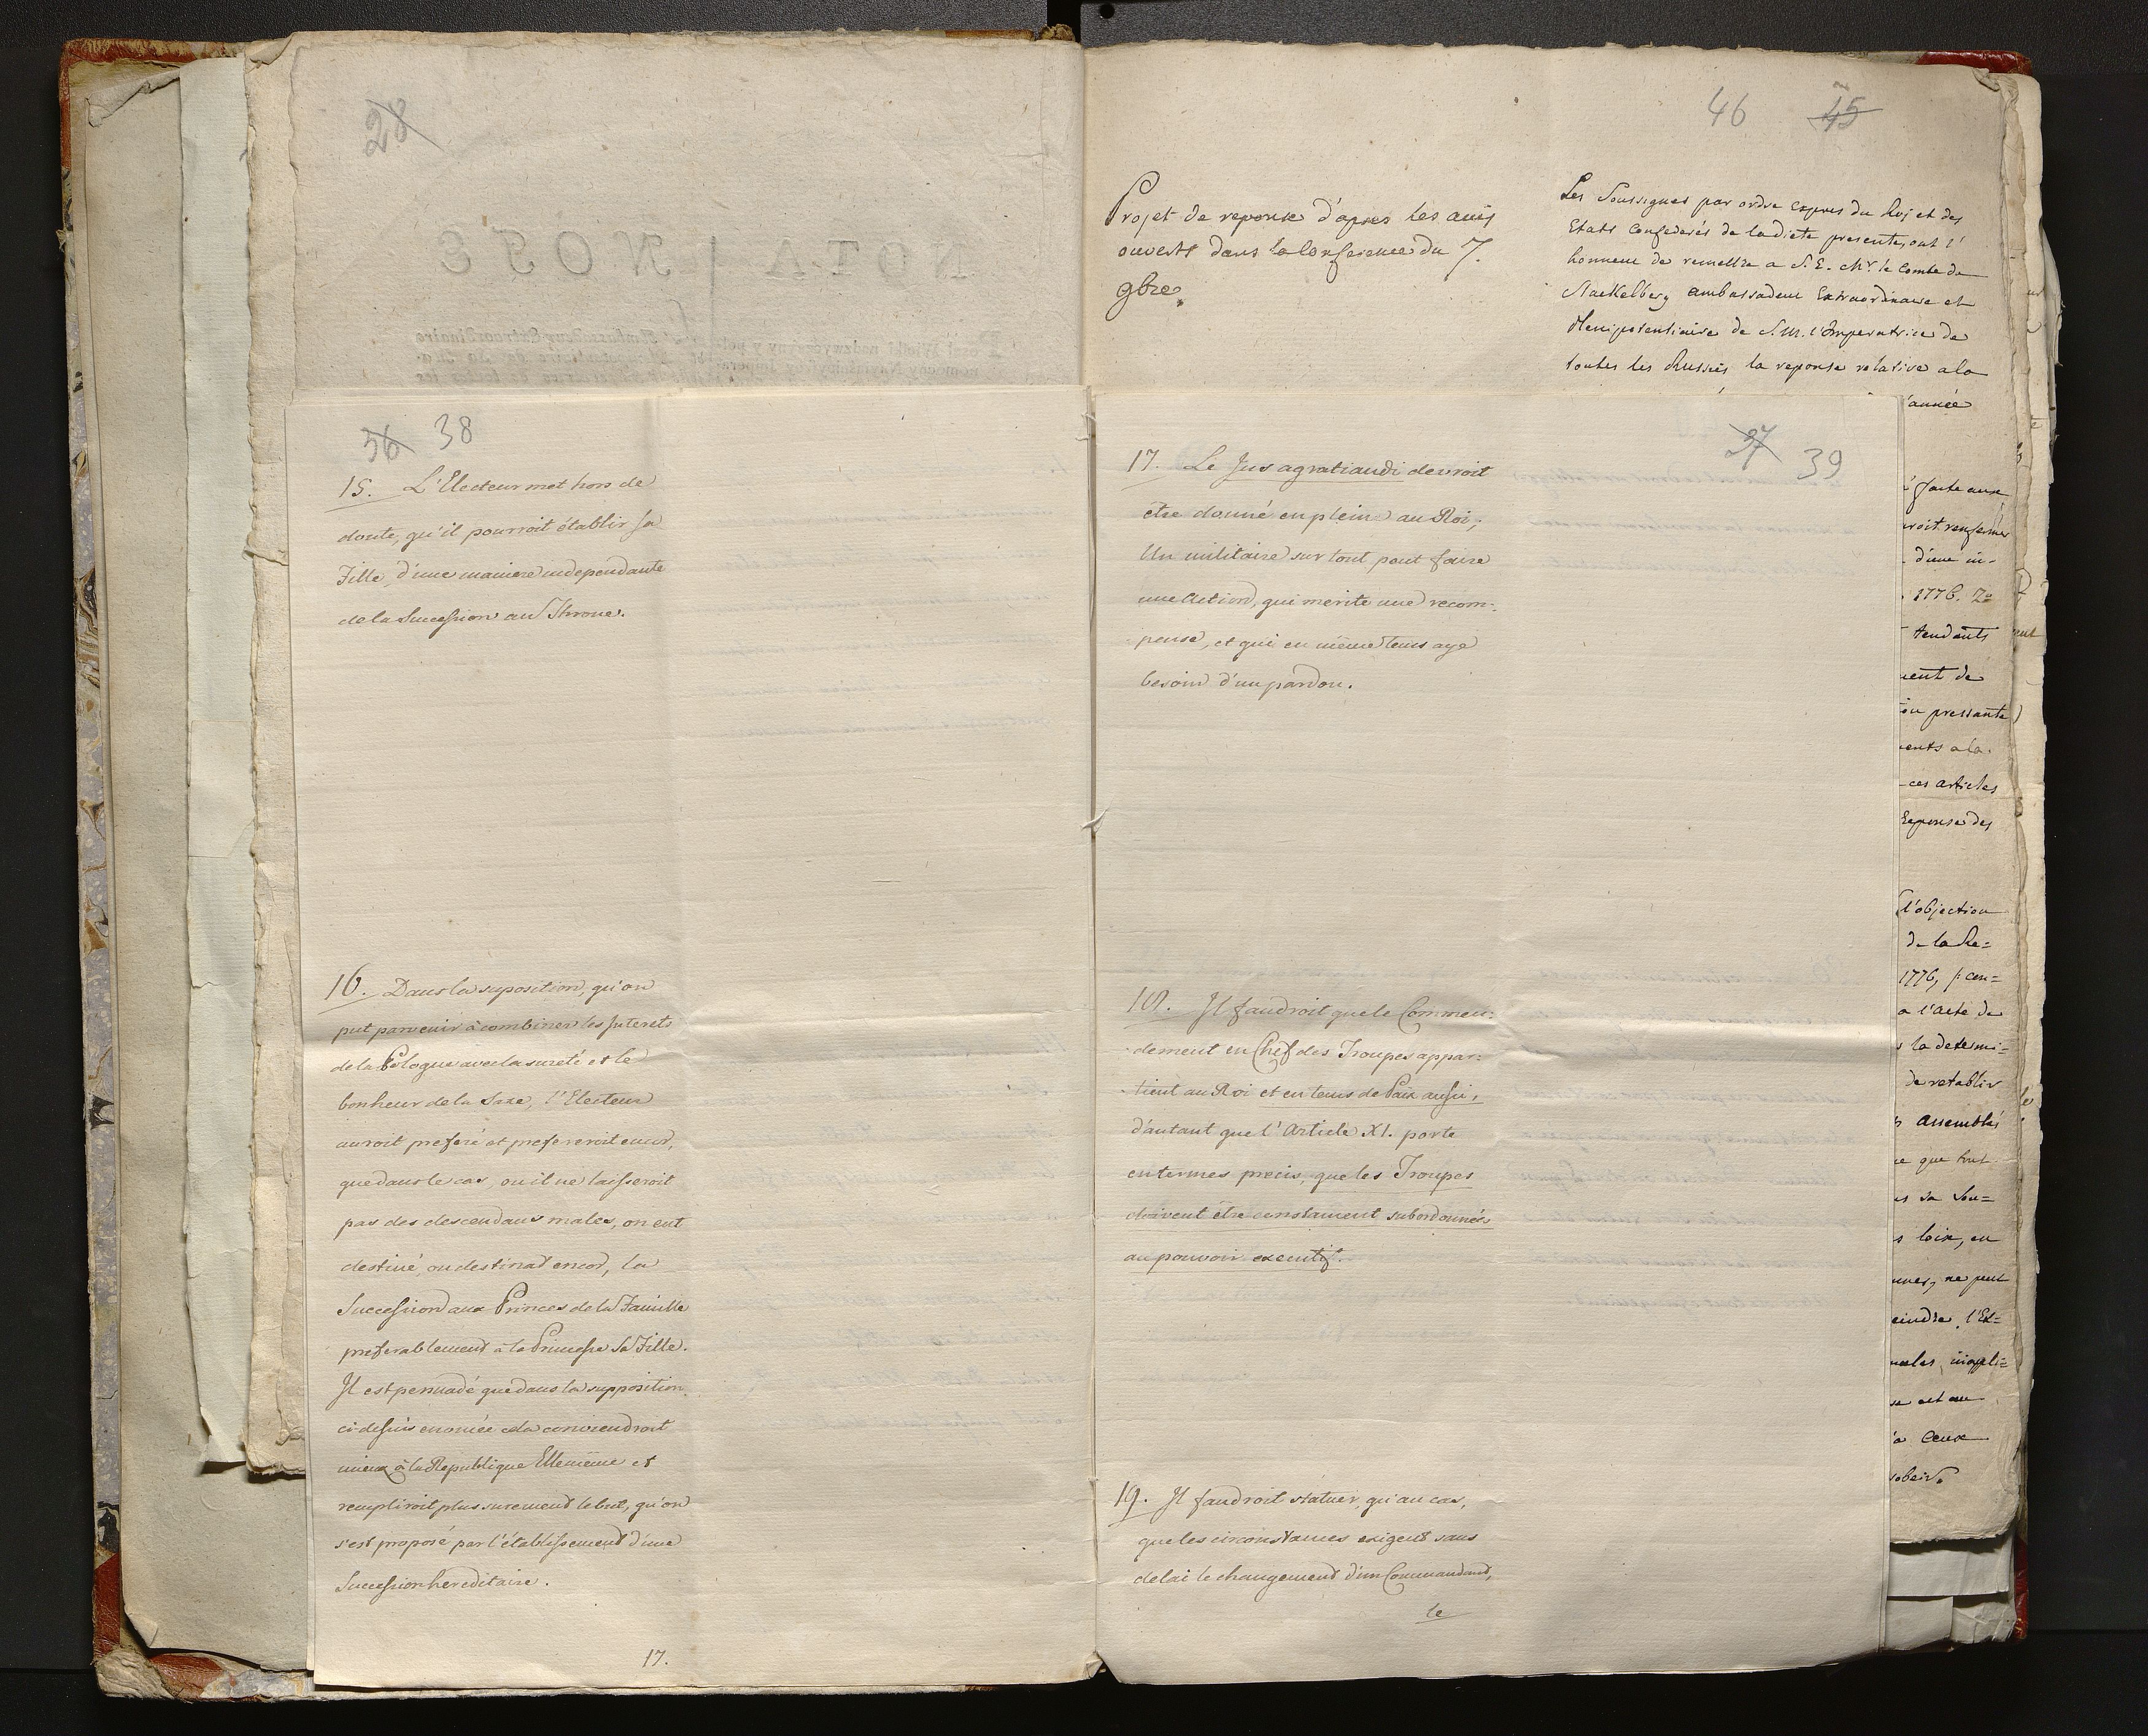 28
NOTA NOTE
38
36
15. L'Electeur met hors de
doute, qu'il pourroit établir sa
Fille, d'une maniere independante
de la Succession au Throne.
16. Dans la suposition, qu'on
put parvenir à combiner les Interets
de la Pologne avec la sureté et le
bonheur de la Saxe, l'Electeur
auroit preferé et prefereroit encor,
que dans le cas, ou il ne laisseroit
pas des descendans males, on eut
destiné, ou destinat encor, la
Succession aux Princes de la Famille
preferablement à la Princesse Sa Fille.
Il est persuadé que dans la supposition
ci-dessus enoncée cela conviendroit
mieux à la Republique Ellemême et
rempliroit plus surement le but, qu'on
s'est proposé par l'établissement d'une
Succession hereditaire.
17.
46 45
Projet de reponse d'apres les avis
ouverts dans la Conference du 7.
9bre.
Les Soussignes par ordre expres du Roj et des
Etats Confederés de la diete presente, ont l'
honneur de remettre a S. E. Mr. le Comte de
Stackelberg ambassadeur Extraordinaire et
Plenipotentiaire de S. M. l'Imperatrice de
toutes les Russies la reponse relative a la
l'année
faite aux
d'une in-
1776. 2º
tendants
ment de
pressante
ments a la
ces articles
Reponse des
l'objection
de la Re=
1776,
a l'Acte de
la determi=
de retablir
assemblés
que tout
sa Sou=
loix, en
ne peut
l'Et=
a Ceux
37 39
17. Le Jus agratiandi devroit
etre donné en plein au Roi;
Un militaire sur tout peut faire
une Action, qui merite une recom-
pense, et qui en même tems aye
besoin d'un pardon.
18. Il faudroit que le Commen-
dement en Chef des Troupes appar-
tient au Roi et en tems de Paix aussi,
d'autant que l'Article XI. porte
en termes precis, que les Troupes
doivent être constament subordonnées
au pouvoir executif.
19. Il faudroit statuer, qu'au cas,
que les circonstances exigent sans
delai le changement d'un Commandant,
le